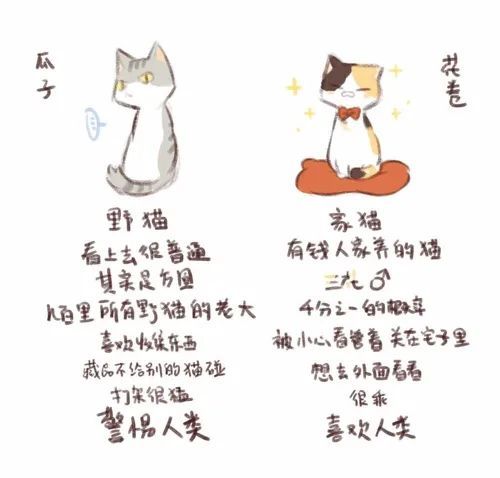 瓜子
野猫
看上去很普通
其实是方圆
几百里所有野猫的老大
喜欢收集东西
藏品不给别的猫碰
打架很猛
警惕人类
花卷
家猫
有钱人家养的猫
三花♂
千分之一的概率
被小心看管着关在宅子里
想去外面看看
很乖
喜欢人类